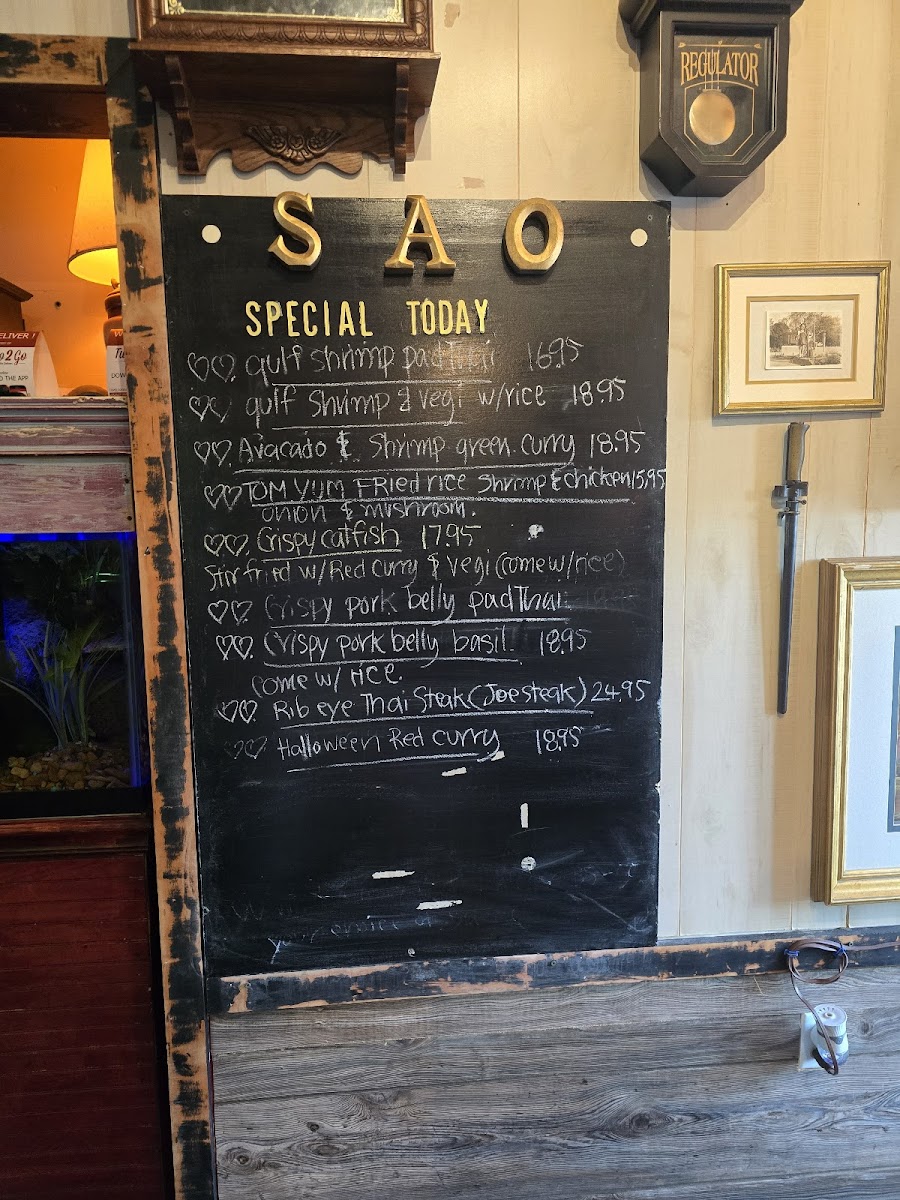 REGULATOR
SAO
SPECIAL TODAY
♡♡. gulf shrimp pad Thai 16.95
♡♡. gulf shrimp & vegi w/rice 18.95
♡♡. Avacado & shrimp green curry 18.95
♡♡ TOM YUM FRied rice shrimp & chicken 15.95
onion & mushroom.
♡♡. Crispy catfish 17.95
Stir fried w/Red curry & vegi (come w/rice)
♡♡. Crispy pork belly pad Thai
♡♡. Crispy pork belly basil. 18.95
come w/ rice.
♡♡. Rib eye Thai Steak (Joe steak) 24.95
♡♡ Halloween Red curry 18.95
DELIVER !
2Go
THE APP